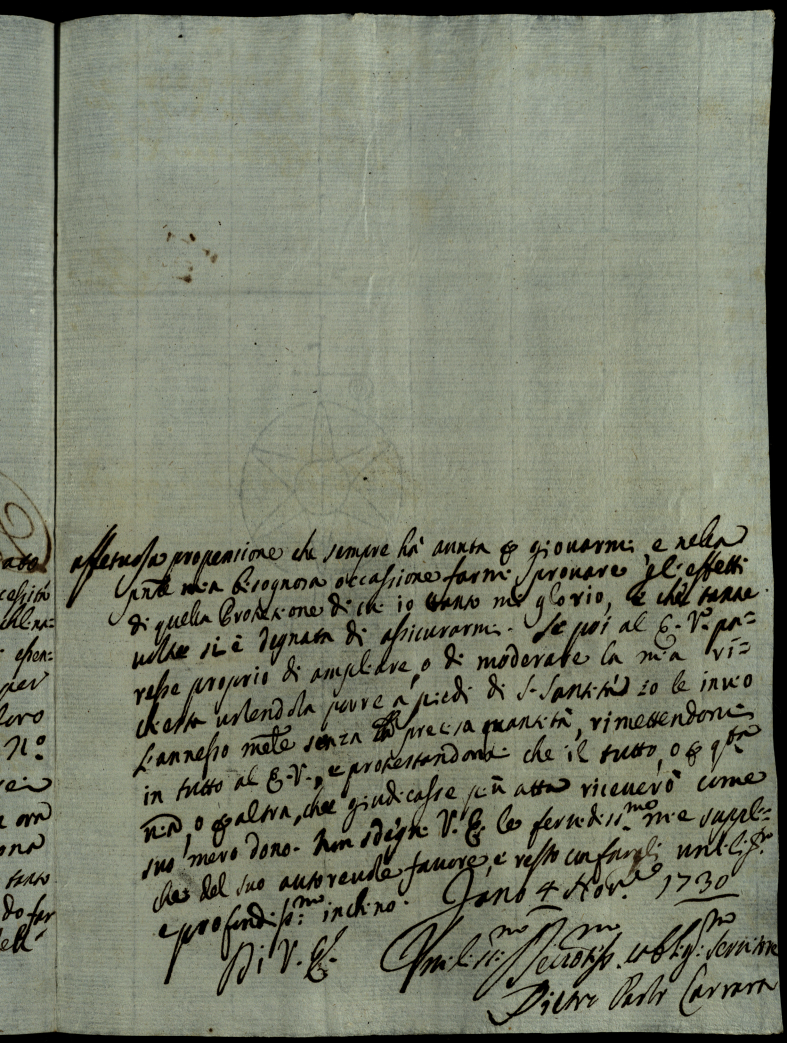 affettuosa propensione che sempre hà auuta p giouarmi, e nella
pnte mia bisognosa occassione farmi prouare gl'effetti
di quella Protezione di cui io tanto mi glorio, e che tante
uolte si è degnata di assicurarmi. Se poi al E. V. pa=
resse proprio di ampliare, o di moderare la mia ri=
chiesta uolendola porre a piedi di S. Santità io le inuio
l'annesso mle senza precisa quantità, rimettendomi
in tutto al E. V., e protestandomi che il tutto, o p qta
uia, o p altra, che giudicasse più atta riceuerò come
suo mero dono. Non sdegni V. E. le feruidissme mie suppli=
che del suo autoreuole fauore, e resto con fargli umilissmo
e profondissmo inchino. Fano 4 Nov.re 1730
Di V. E.
Umilissmo Deuotissmo obligmo Seruitore
Pietro Paolo Carrara
ato
cessità
essen=
per
loro
n.o
ora
ona
tanto
do far
dell'